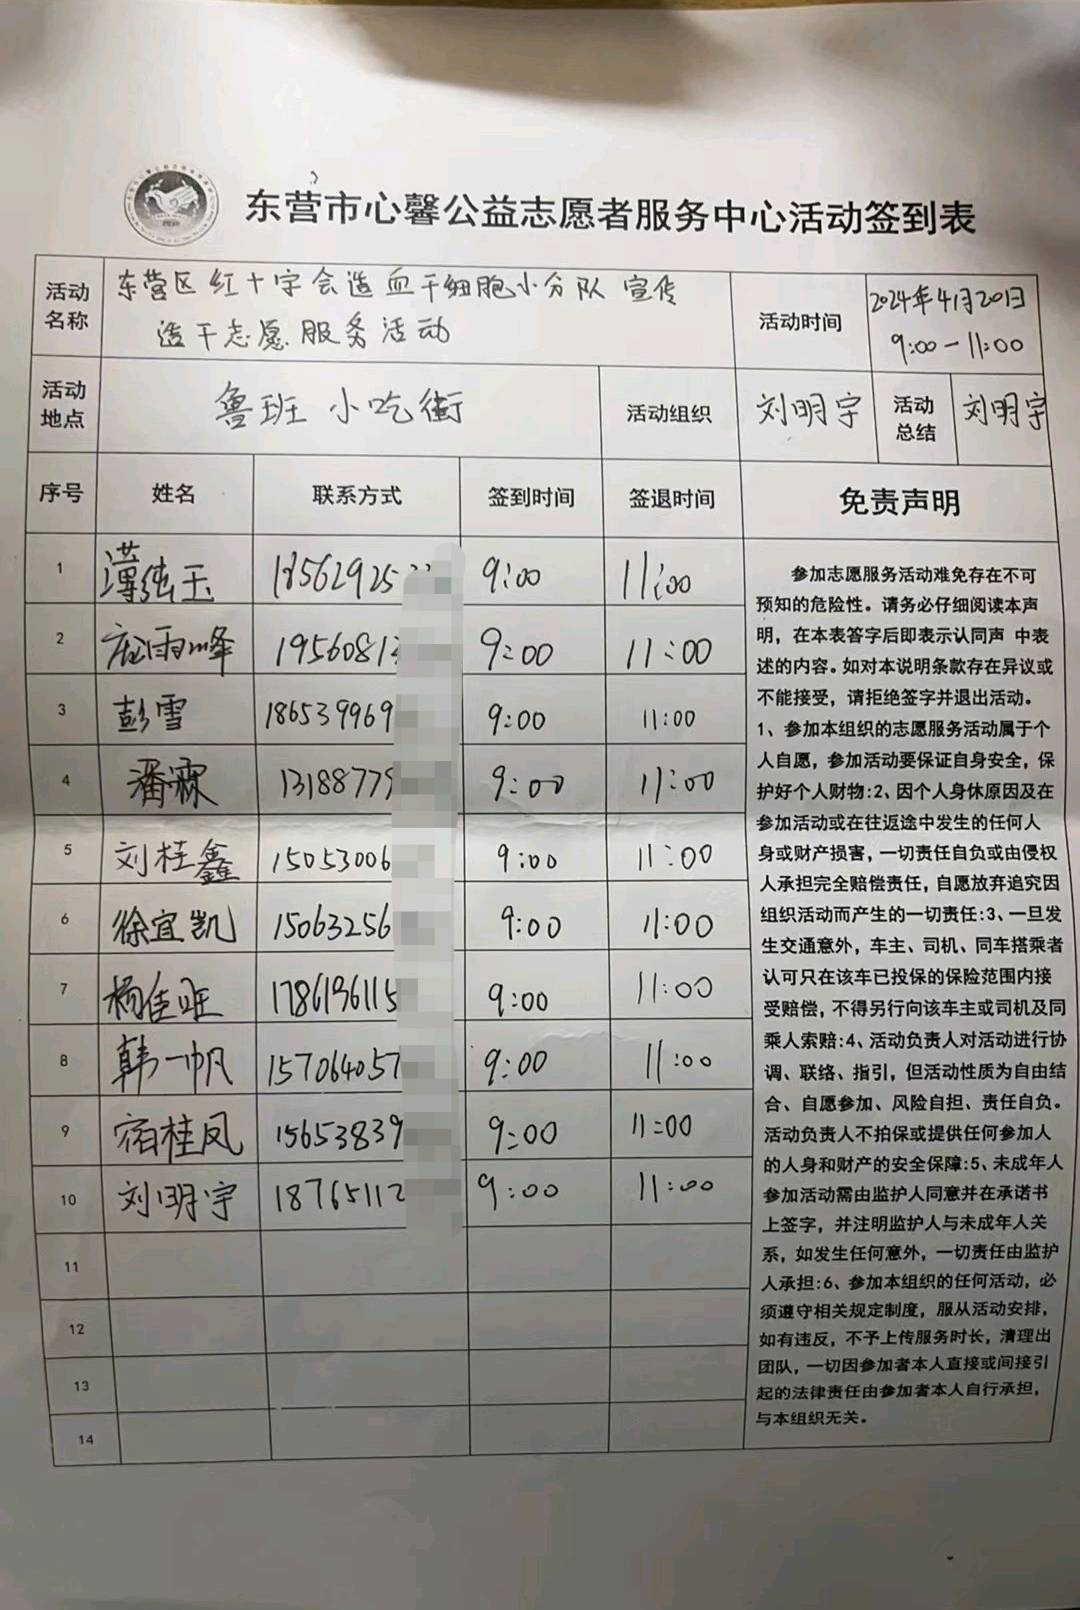 东营市心馨公益志愿者服务中心活动签到表
活动名称 东营区红十字会造血干细胞小分队宣传
造干志愿服务活动
活动时间 2024年4月20日
9:00-11:00
活动地点 鲁班小吃街 活动组织 刘明宇 活动总结 刘明宇
序号 姓名 联系方式 签到时间 签退时间 免责声明
1 薄纯玉 18562925 9:00 11:00
2 庞雨峰 1956081 9:00 11:00
3 彭雪 186539969 9:00 11:00
4 潘霖 13188779 9:00 11:00
5 刘桂鑫 15053006 9:00 11:00
6 徐宜凯 15063256 9:00 11:00
7 杨佳旺 1786196115 9:00 11:00
8 韩一帆 157064057 9:00 11:00
9 宿桂凤 15653839 9:00 11:00
10 刘明宇 18765112 9:00 11:00
11
12
13
14
参加志愿服务活动难免存在不可
预知的危险性。请务必仔细阅读本声
明，在本表答字后即表示认同声 中表
述的内容。如对本说明条款存在异议或
不能接受，请拒绝签字并退出活动。
1、参加本组织的志愿服务活动属于个
人自愿，参加活动要保证自身安全，保
护好个人财物:2、因个人身休原因及在
参加活动或在往返途中发生的任何人
身或财产损害，一切责任自负或由侵权
人承担完全赔偿责任，自愿放弃追究因
组织活动而产生的一切责任:3、一旦发
生交通意外，车主、司机、同车搭乘者
认可只在该车已投保的保险范围内接
受赔偿，不得另行向该车主或司机及同
乘人索赔:4、活动负责人对活动进行协
调、联络、指引，但活动性质为自由结
合、自愿参加、风险自担、责任自负。
活动负责人不拍保或提供任何参加人
的人身和财产的安全保障:5、未成年人
参加活动需由监护人同意并在承诺书
上签字，并注明监护人与未成年人关
系，如发生任何意外，一切责任由监护
人承担:6、参加本组织的任何活动，必
须遵守相关规定制度，服从活动安排，
如有违反，不予上传服务时长，清理出
团队，一切因参加者本人直接或间接引
起的法律责任由参加者本人自行承担，
与本组织无关。